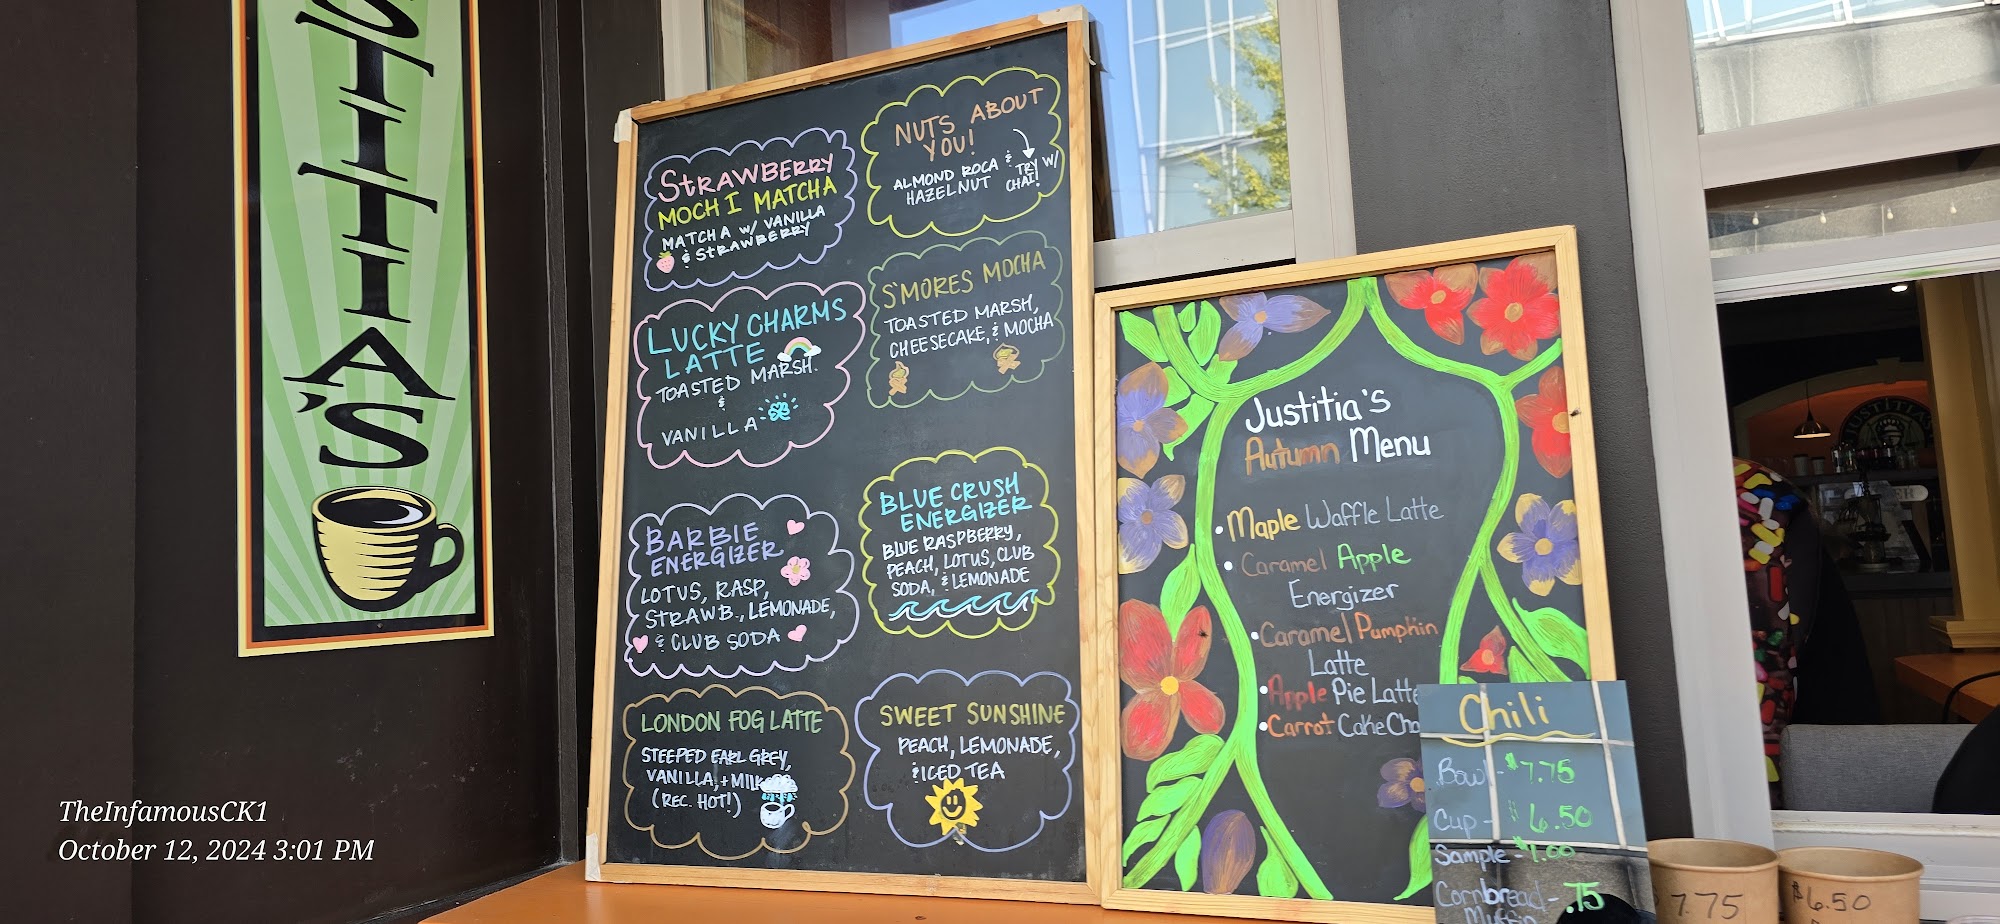 STITIA'S
STRAWBERRY
MOCHI MATCHA
MATCHA W/ VANILLA
& STRAWBERRY
LUCKY CHARMS
LATTE
TOASTED MARSH.
&
VANILLA
BARBIE
ENERGIZER
LOTUS, RASP,
STRAWB., LEMONADE,
& CLUB SODA
LONDON FOG LATTE
STEEPED EARL GREY,
VANILLA, + MILK
(REC. HOT!)
NUTS ABOUT
YOU!
ALMOND ROCA &
HAZELNUT
TRY W/
CHAI!
S'MORES MOCHA
TOASTED MARSH,
CHEESECAKE, & MOCHA
BLUE CRUSH
ENERGIZER
BLUE RASPBERRY,
PEACH, LOTUS, CLUB
SODA, & LEMONADE
SWEET SUNSHINE
PEACH, LEMONADE,
& ICED TEA
Justitia's
Autumn Menu
• Maple Waffle Latte
• Caramel Apple
Energizer
• Caramel Pumpkin
Latte
• Apple Pie Latte
• Carrot Cake Cha
Chili
Bowl - $7.75
Cup - $6.50
Sample - $1.00
Cornbread - .75
Muffin
7.75
$6.50
JUSTITIA'S
TheInfamousCK1
October 12, 2024 3:01 PM